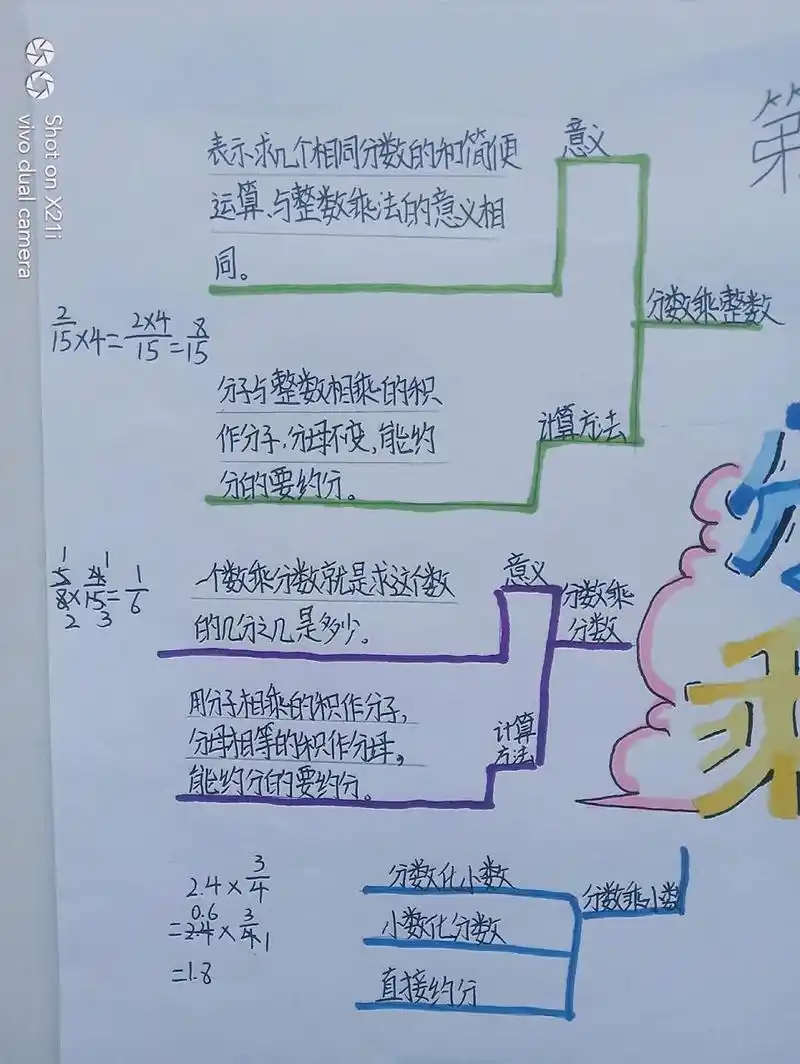 Shot on X21i
vivo dual camera
第
意义
表示求几个相同分数的和简便
运算,与整数乘法的意义相
同。
分数乘整数
2/15×4=2×4/15=8/15
分子与整数相乘的积
作分子,分母不变,能约
分的要约分。
计算方法
1 1
5/8×4/15=1/6
2 3
一个数乘分数就是求这个数
的几分之几是多少。
意义
分数乘
分数
用分子相乘的积作分子,
分母相等的积作分母,
能约分的要约分。
计算
方法
分
乘
2.4×3/4
0.6
=2.4×3/4 1
=1.8
分数化小数
小数化分数
直接约分
分数乘小数